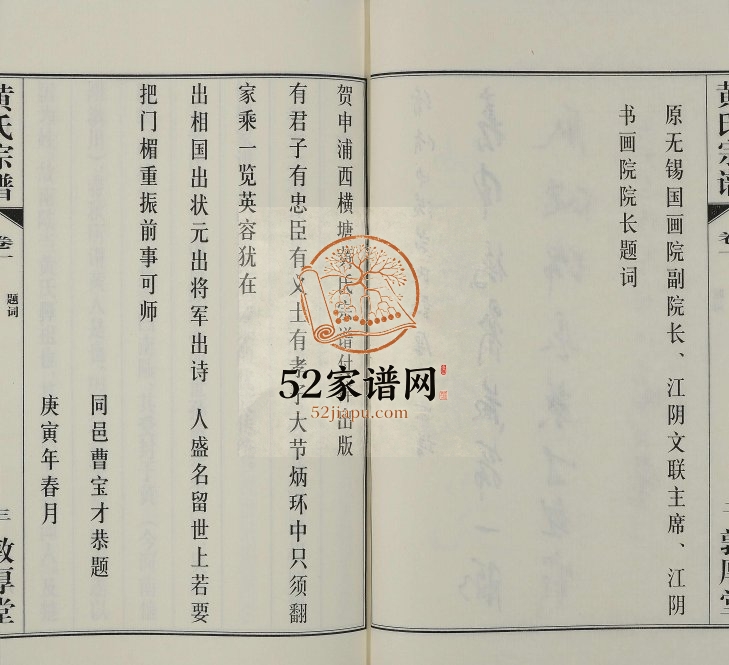 黄氏宗谱
卷一
敦厚堂
原无锡国画院副院长、江阴文联主席、江阴
书画院院长题词
贺申浦西横塘黄氏宗谱付出版
有君子有忠臣有义士有孝子大节炳环中只须翻
家乘一览英容犹在
出相国出状元出将军出诗 人盛名留世上若要
把门楣重振前事可师
同邑曹宝才恭题
庚寅年春月
黄氏宗谱
卷一
题词
三
敦厚堂
52家谱网
52jiapu.com